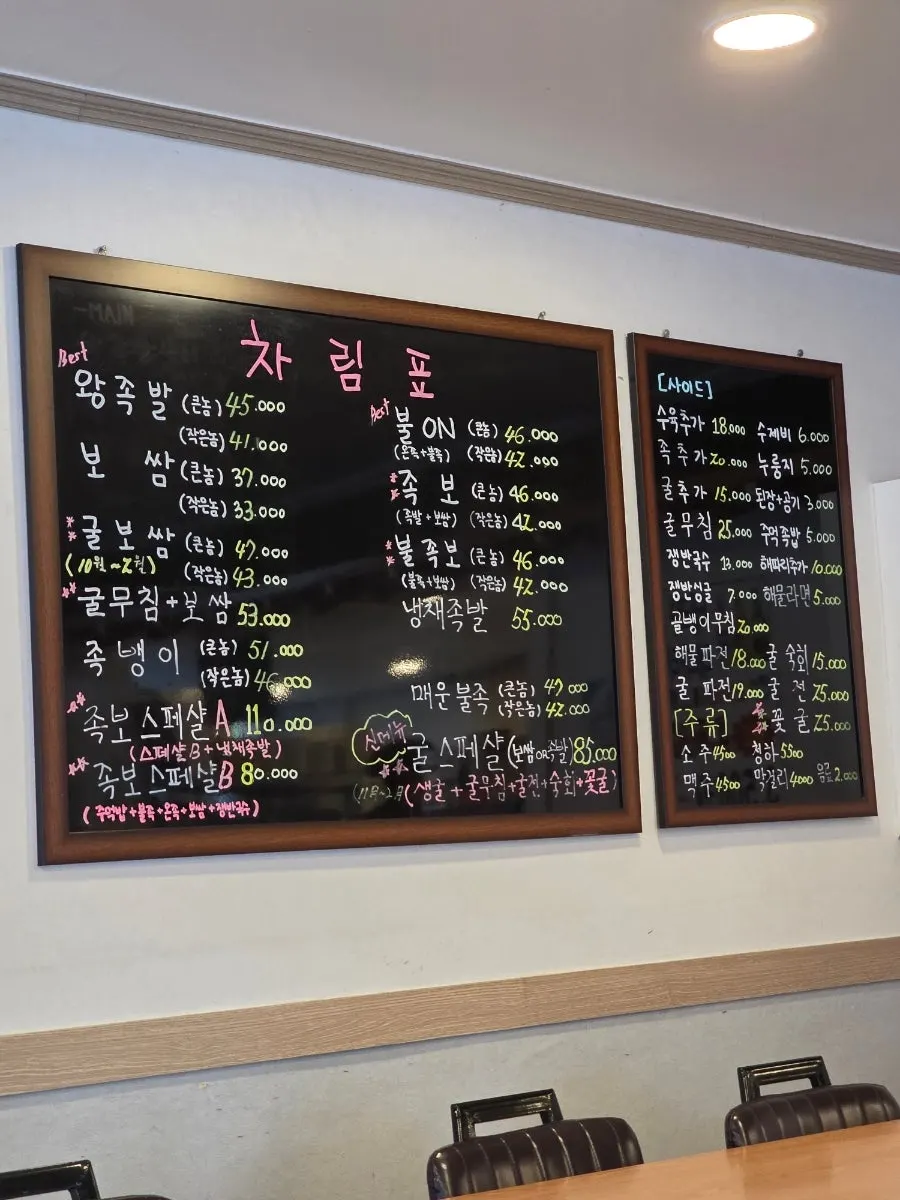 -MAIN
차림표
Best
왕족발 (큰놈) 45.000
(작은놈) 41.000
보쌈 (큰놈) 37.000
(작은놈) 33.000
굴보쌈 (큰놈) 47.000
(10월~2월) (작은놈) 43.000
굴무침+보쌈 53.000
족뱅이 (큰놈) 51.000
(작은놈) 46.000
족보스페샬A 110.000
(스페샬B+냉채족발)
족보스페샬B 80.000
(주먹밥+불족+온족+보쌈+쟁반국수)
Best
불ON (큰놈) 46.000
(온족+불족) (작은놈) 42.000
족보 (큰놈) 46.000
(족발+보쌈) (작은놈) 42.000
불족보 (큰놈) 46.000
(불족+보쌈) (작은놈) 42.000
냉채족발 55.000
매운불족 (큰놈) 47.000
(작은놈) 42.000
신메뉴
굴스페샬 (보쌈OR족발) 85.000
(11월~2월) (생굴+굴무침+굴전+숙회+꽃굴)
[사이드]
수육추가 18.000 수제비 6.000
족추가 20.000 누룽지 5.000
굴추가 15.000 된장+공기 3.000
굴무침 25.000 주먹족밥 5.000
쟁반국수 13.000 해파리추가 10.000
쟁반싱글 7.000 해물라면 5.000
골뱅이무침 20.000
해물파전 18.000 굴숙회 15.000
굴파전 19.000 굴전 25.000
[주류] 꽃굴 25.000
소주 4500 청하 5500
맥주 4500 막걸리 4000 음료 2.000